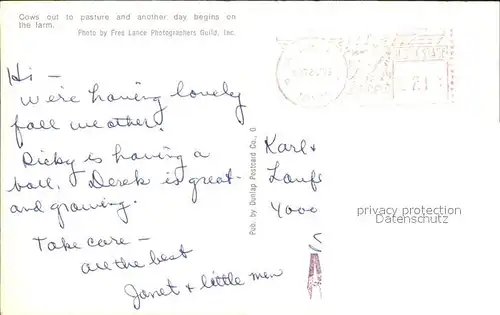 Cows out to pasture and another day begins on
the farm.
Photo by Free Lance Photographers Guild, Inc.
Hi —
We're having lovely
fall weather.
Ricky is having a
ball. Derek is great -
and growing.
Take care —
all the best
Janet + little men
Pub. by Dunlap Postcard Co., O
Karl +
4000
privacy protection
Datenschutz